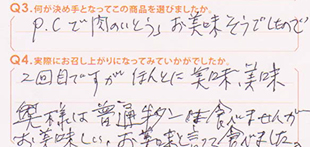 Q3.何が決め手となってこの商品を選びましたか。
P.Cで肉のいとう。お美味そうでしたので
Q4.実際にお召し上がりになってみていかがでしたか。
2回目ですがほんとに美味、美味
奥様は普通牛タンは食べませんが
お美味しい、お美味と言って食べました。